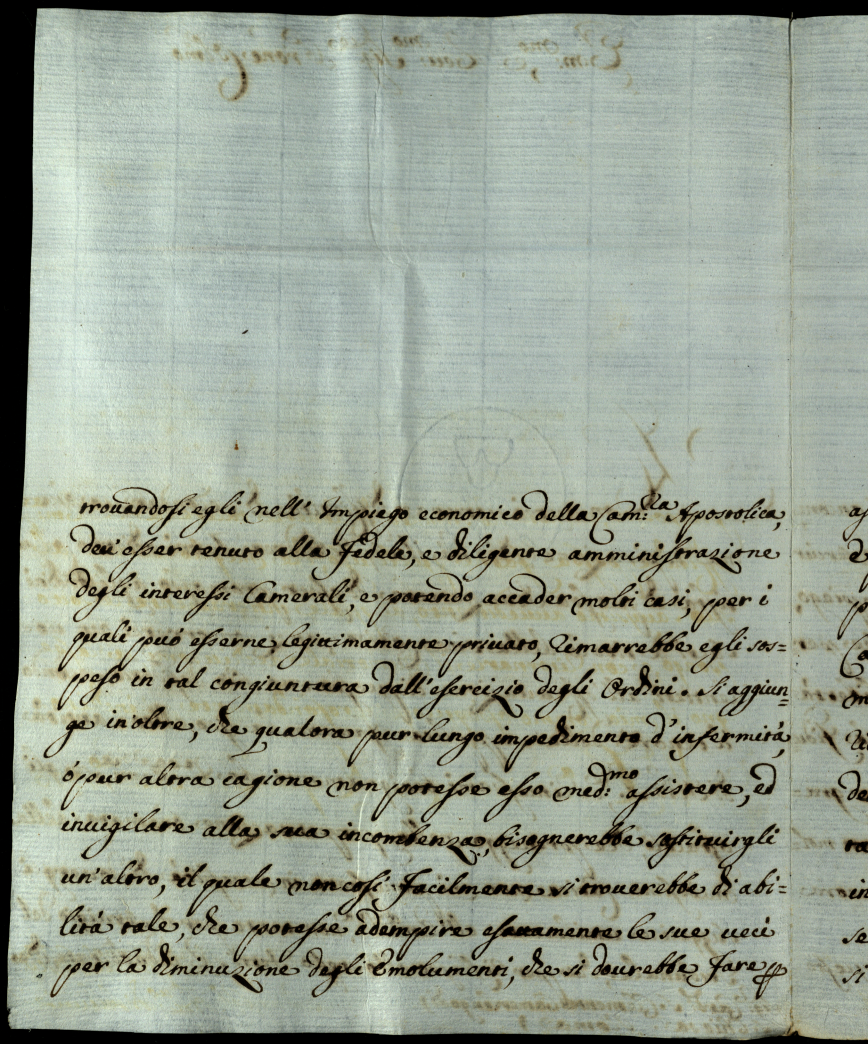 trouandosi egli nell' Impiego economico della Cam:ra Apostolica,
deu' esser tenuto alla Fedele, e diligente amministrazione
degli interessi Camerali, e potendo accader molti casi, per i
quali può esserne legittimamente priuato, rimarrebbe egli sos=
peso in tal congiuntura dall' esercizio degli Ordini. Si aggiun=
ge in oltre, che qualora pur lungo impedimento d' infermità,
ò pur altra cagione non potesse esso med:mo assistere, ed
inuigilare alla sua incombenza, bisognerebbe sostituirgli
un' altro, il quale non così facilmente si trouerebbe di abi=
lità tale, che potesse adempire esattamente le sue ueci
per la diminuzione degli Emolumenti, che si dourebbe fare